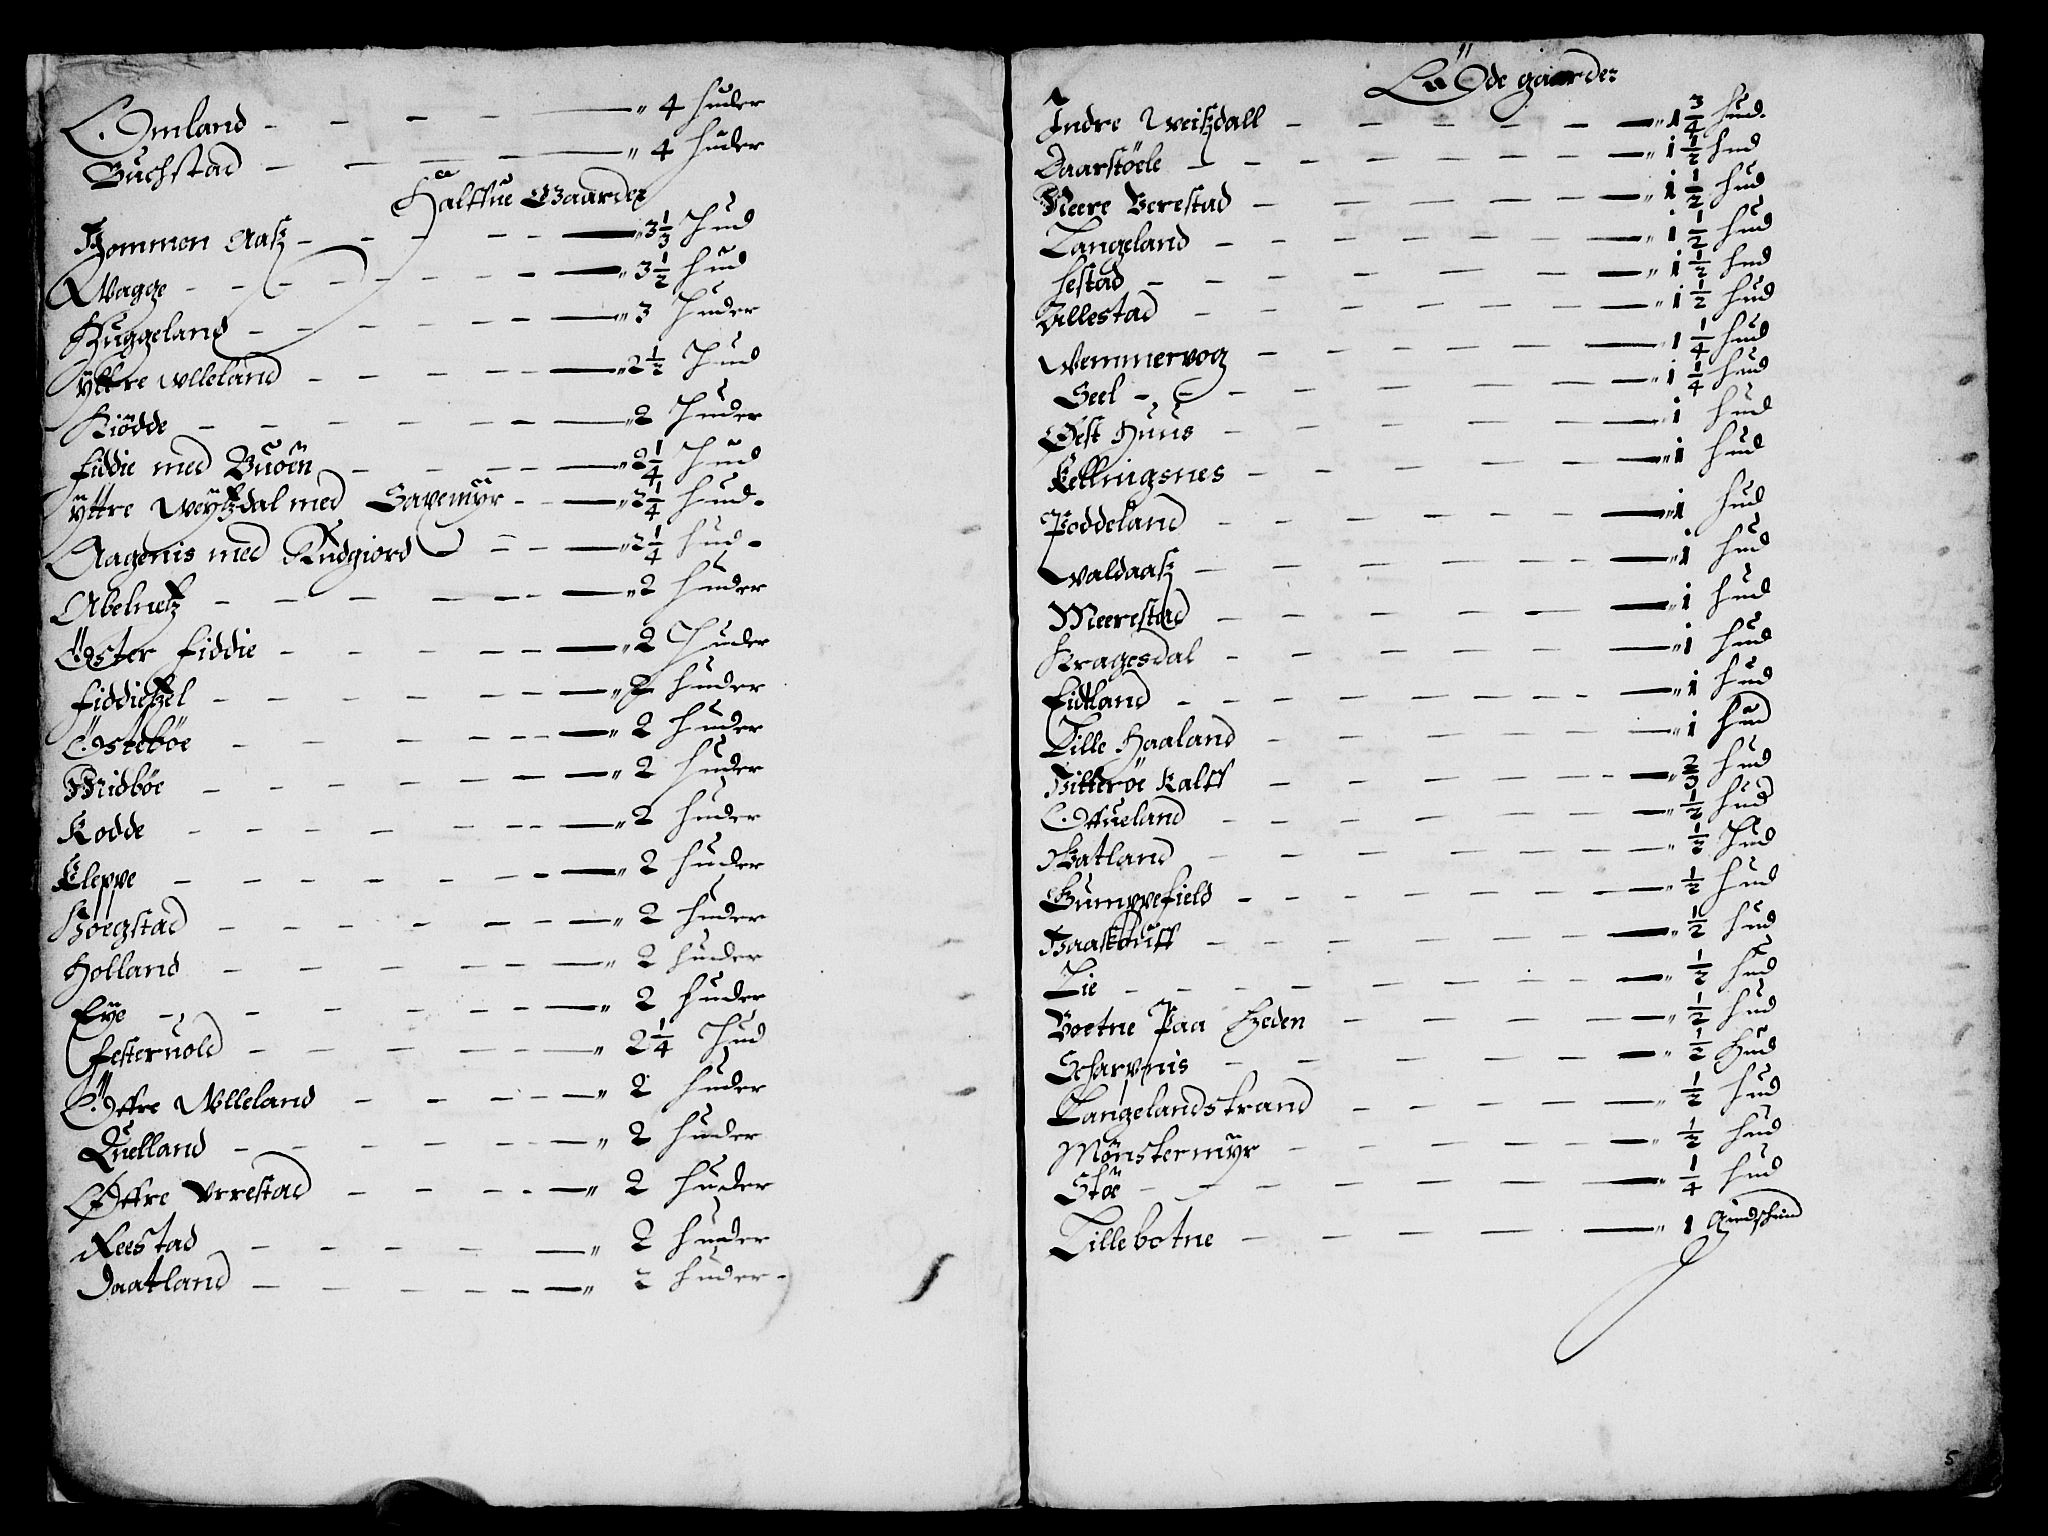 Omland - - - - — „ 4 huder
Buchstad - - - - — „ 4 huder
Halffue Gaarder
Hommen Aasz - - - - — „ 3 1/3 hud
Wagge - - - - — „ 3 1/2 hud
Huggeland - - - - — „ 3 huder
Yttre Wlleland - - - - — „ 2 1/2 hud
Kiödde - - - - — „ 2 huder
Fiddie med Buöen - - - - — „ 2 1/4 hud
Yttre Weyszdal med Sapemÿr - - — „ 2 1/4 hud
Aagenis med Rudgiord - - - — „ 2 1/4 hud
Abelnesz - - - - — „ 2 huder
Öster Fiddie - - - - — „ 2 huder
Fiddieszel - - - - — „ 2 huder
Östeböe - - - - — „ 2 huder
Midböe - - - - — „ 2 huder
Rodde - - - - — „ 2 huder
Kleppe - - - - — „ 2 huder
Höegstad - - - - — „ 2 huder
Holland - - - - — „ 2 huder
Eÿe - - - - — „ 2 huder
Festeruold - - - - — „ 2 1/4 hud
Öffre Wlleland - - - - — „ 2 huder
Quelland - - - - — „ 2 huder
Öffre Vrrestad - - - - — „ 2 huder
Reestad - - - - — „ 2 huder
Daatland - - - - — „ 2 huder
Öde gaarder
Indre Weiszdall - - - - — „ 1 3/4 hud
Daarstöele - - - - — „ 1 1/2 hud
Neere Verestad - - - - — „ 1 1/2 hud
Langeland - - - - — „ 1 1/2 hud
Sestad - - - - — „ 1 1/2 hud
Allestad - - - - — „ 1 1/2 hud
Wemmervog - - - - — „ 1 1/4 hud
Seel - - - - — „ 1 1/4 hud
Öest Huus - - - - — „ 1 hud
Kellingsnes - - - - — „ 1 hud
Poddeland - - - - — „ 1 hud
Waldaasz - - - - — „ 1 hud
Meerestad - - - - — „ 1 hud
Kragesdal - - - - — „ 1 hud
Eidtland - - - - — „ 1 hud
Lille Haaland - - - - — „ 1 hud
Hitteröe Kalff - - - - — „ 2/3 hud
Offueland - - - - — „ 1/2 hud
Batland - - - - — „ 1/2 hud
Gumppefield - - - - — „ 1/2 hud
- - - - — „ 1/2 hud
Lie - - - - — „ 1/2 hud
Boetne Paa Heden - - - - — „ 1/2 hud
Scharpnis - - - - — „ 1/2 hud
Langelandstrand - - - - — „ 1/2 hud
Mönstermÿr - - - - — „ 1/2 hud
Stöe - - - - — „ 1/4 hud
Lille botne - - - - — „ 1 giedschind
5